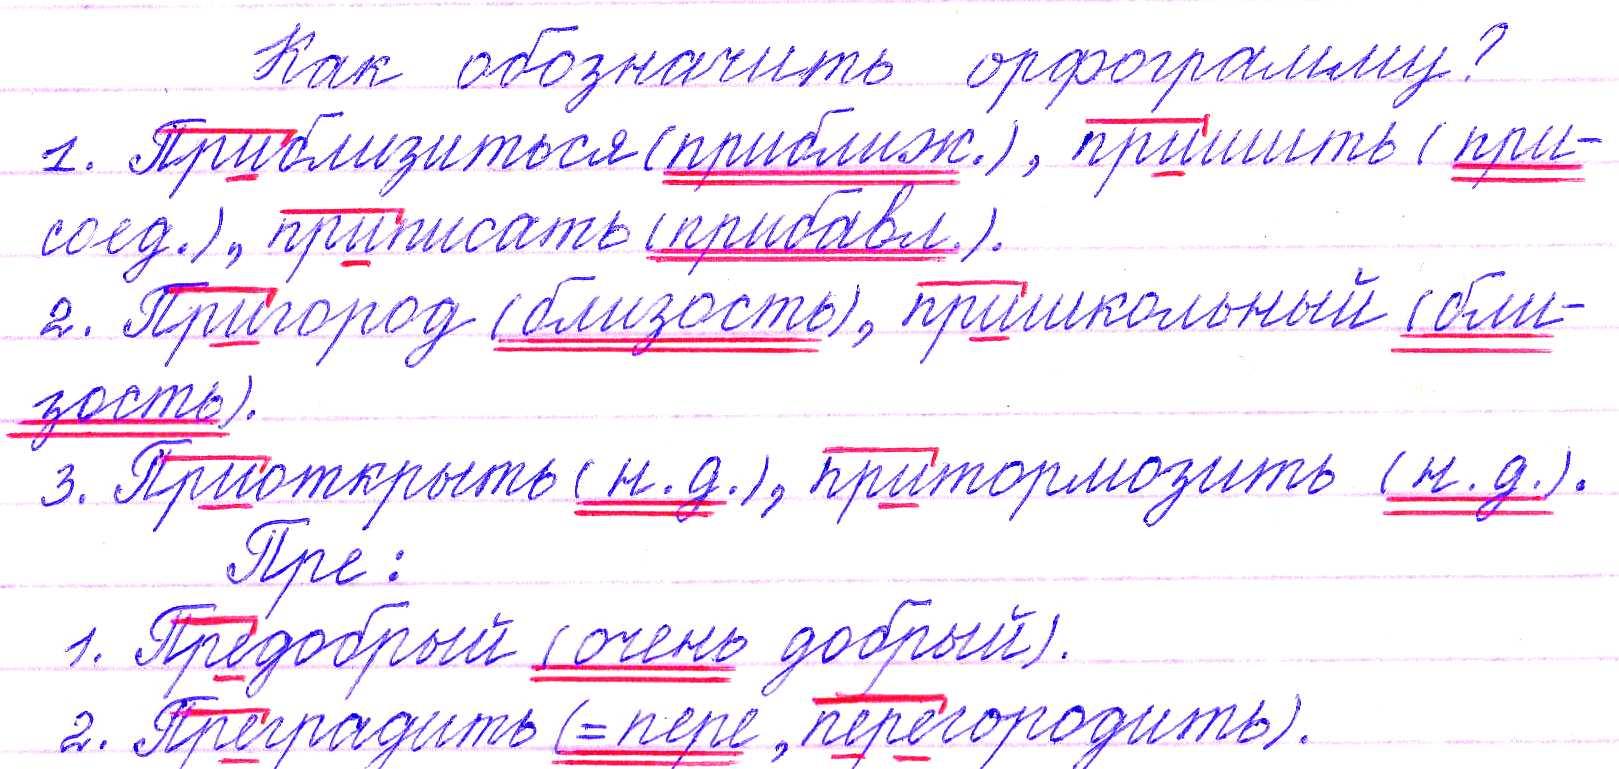 Как обозначить орфограмму?
1. Приблизиться (приближ.), пришить (при-
соед.), приписать (прибавл.).
2. Пригород (близость), пришкольный (бли-
зость).
3. Приоткрыть (н.д.), притормозить (н.д.).
Пре:
1. Предобрый (очень добрый).
2. Преградить (=пере, перегородить).